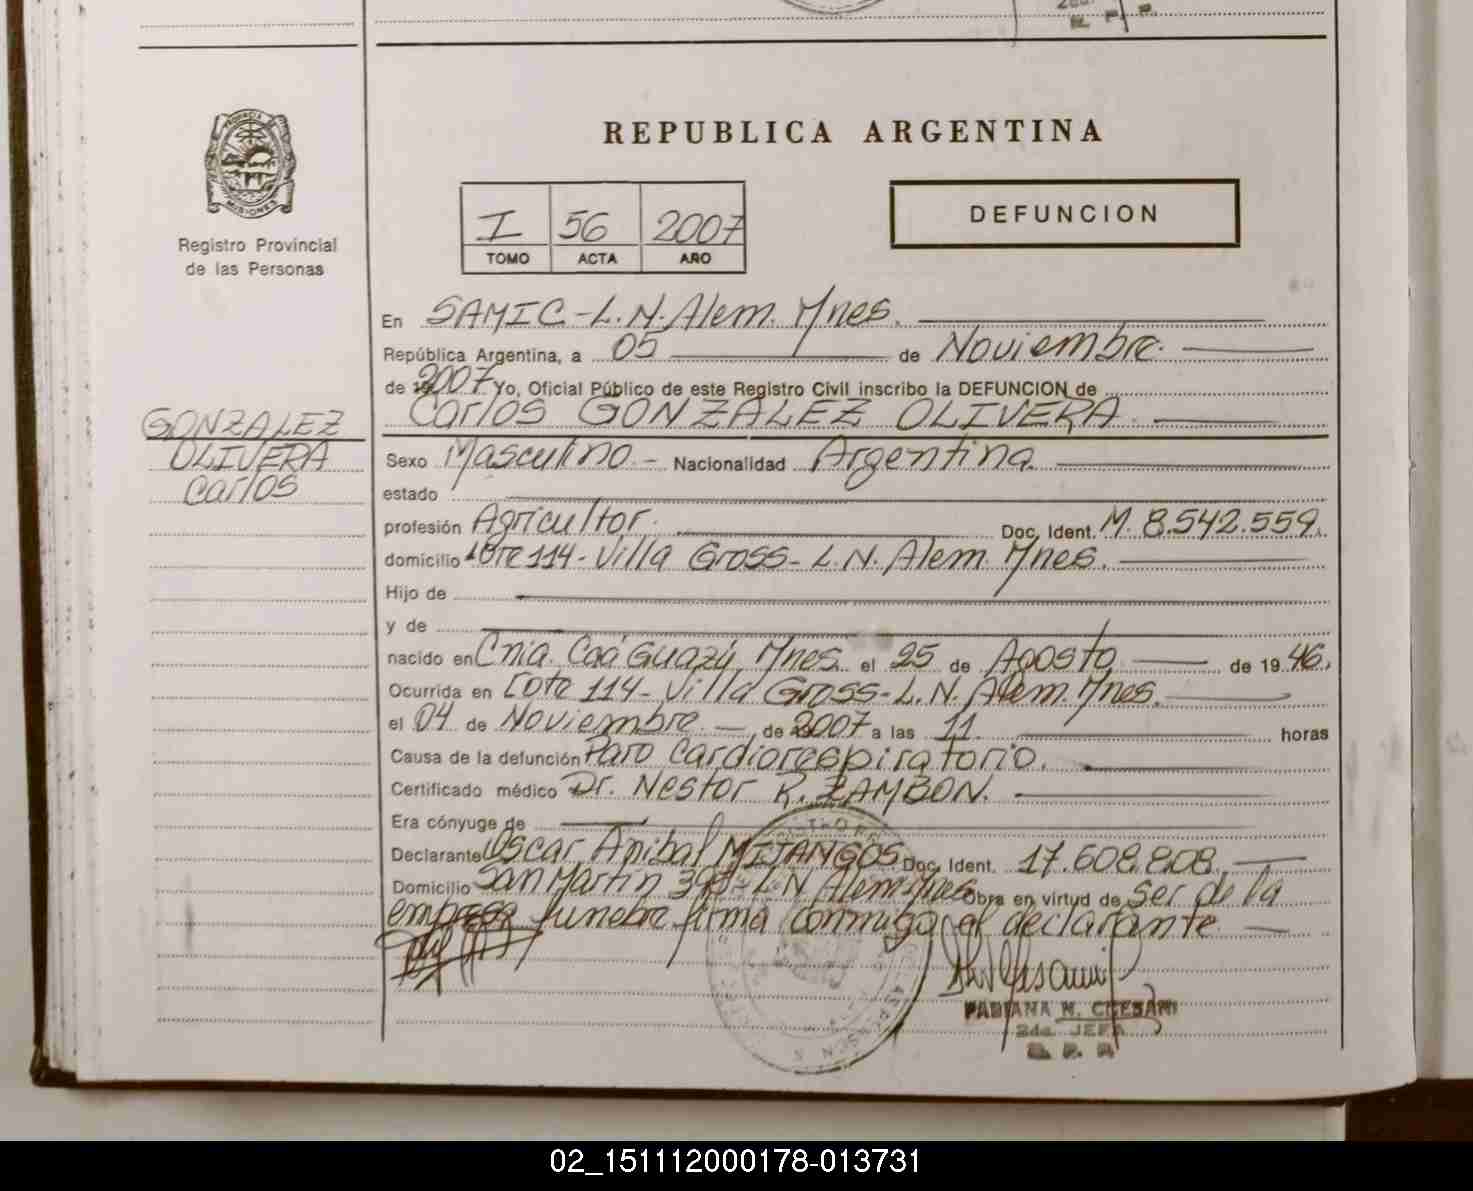 PROVINCIA DE
MISIONES
Registro Provincial
de las Personas
REPUBLICA ARGENTINA
I 56 2007
TOMO ACTA AÑO
DEFUNCION
En SAMIC-L.N.Alem. Mnes.
República Argentina, a 05 de Noviembre.
de 2007 Yo, Oficial Público de este Registro Civil inscribo la DEFUNCION de
Carlos GONZALEZ OLIVERA.
GONZALEZ
OLIVERA
Carlos
Sexo Masculino.- Nacionalidad Argentina
estado
profesión Agricultor. Doc. Ident. M. 8.542.559.
domicilio Lote 114-Villa Gross-L.N.Alem. Mnes.
Hijo de
y de
nacido en Cnia. Caá Guazú, Mnes. el 25 de Agosto de 19 46.
Ocurrida en Lote 114-Villa Gross-L.N. Alem. Mnes.
el 04 de Noviembre.- de 2007 a las 11. horas
Causa de la defunción Paro cardiorespiratorio.
Certificado médico Dr. Nestor R. ZAMBON.
Era cónyuge de
Declarante Oscar Anibal MIJANGOS Doc. Ident. 17.608.808.
Domicilio San Martin L.N Alem Mnes Obra en virtud de Ser de la
empresa funebre firma conmigo el declarante
FABIANA N. CHESANI
2da. JEFA
R. P. P.
02_151112000178-013731